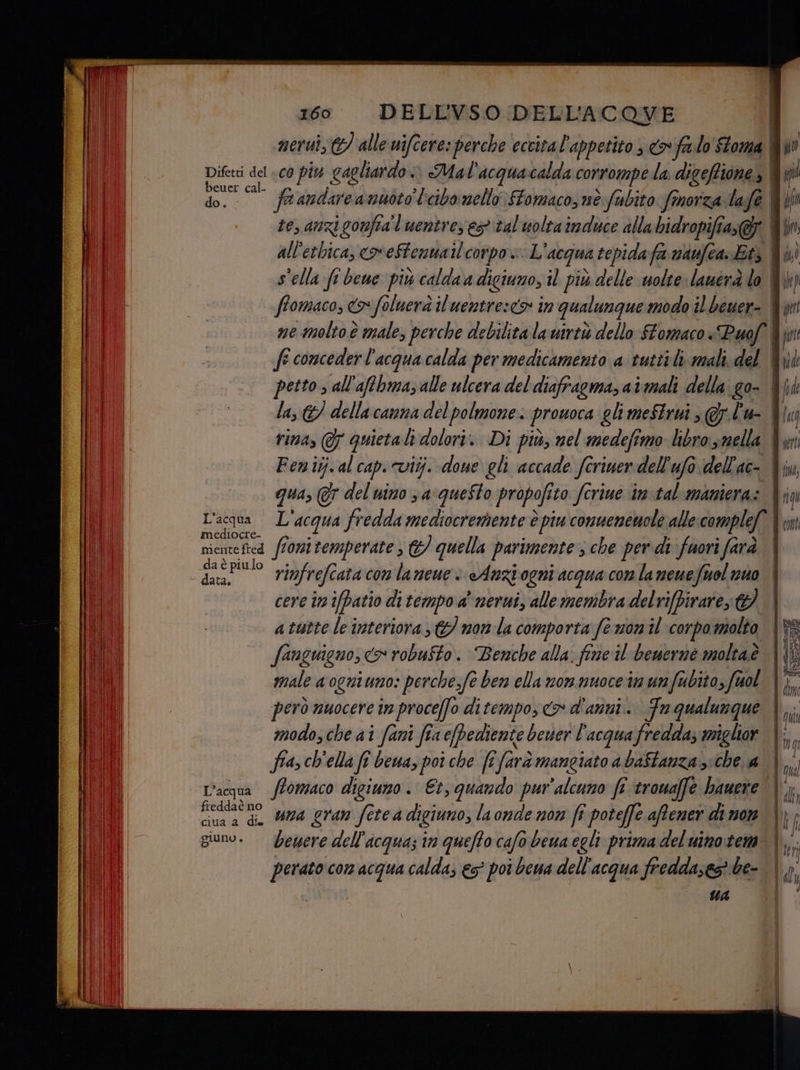 160 DELL'VSO DELL'ACQVE
nerui, & alle uiſcere: perche eccita l'appetito, & fa lo ſtoma
co piu gagliardo. Mal'acqua calda corrompe la digeſtione,
fa andare a nuoto l cibo nello ſtomaco, nè ſubito ſmorza la ſe
te, anzi gonfia'l uentre, & tal uolta induce alla hidropiſia, &
all'ethica, & eſtenua il corpo. L'acqua tepida fa nauſea. Et,
s'ella ſi beue più calda a digiuno, il più delle uolte lauerà lo
ſtomaco, & ſoluerà il uentre: & in qualunque modo il beuer-
ne molto è male, perche debilita la uirtù dello ſtomaco. Puoſ
ſi conceder l'acqua calda per medicamento a tutti li mali del
petto, all'aſthma, alle ulcera del diafragma, ai mali della go-
la, & della canna del polmone. prouoca gli meſtrui, & l'u-
rina, & quieta li dolori. Di più, nel medeſimo libro, nella
Fen iij. al cap. viij. doue gli accade ſcriuer dell'uſo dell'ac-
qua, & del uino, a queſto propoſito ſcriue in tal maniera:
L'acqua fredda mediocremente è piu conueneuole alle compleſ
ſioni temperate, & quella parimente, che per di fuori farà
rinfreſcata con la neue. Anzi ogni acqua con la neue ſuol nuo
cere in iſpatio di tempo a' nerui, alle membra del riſpirare, &
a tutte le interiora, & non la comporta ſe non il corpo molto
ſanguigno, & robuſto. Benche alla fine il beuerne molta è
male a ogni uno: perche, ſe ben ella non nuoce in un ſubito, ſuol
però nuocere in proceſſo di tempo, & d'anni. In qualunque
modo, che ai ſani ſia eſpediente beuer l'acqua fredda, miglior
ſia, ch'ella ſi beua, poi che ſi ſarà mangiato a baſtanza, che a
ſtomaco digiuno. Et, quando pur'alcuno ſi trouaſſe hauere
una gran ſete a digiuno, la onde non ſi poteſſe aſtener di non
beuere dell'acqua; in queſto caſo beua egli prima del uino tem
perato con acqua calda, & poi beua dell'acqua fredda, & be-
ua
Difetti del
beuer cal-
do.
L'acqua
mediocre-
mente fred
da è piu lo
data.
L'acqua
fredda è no
ciua a di-
giuno.